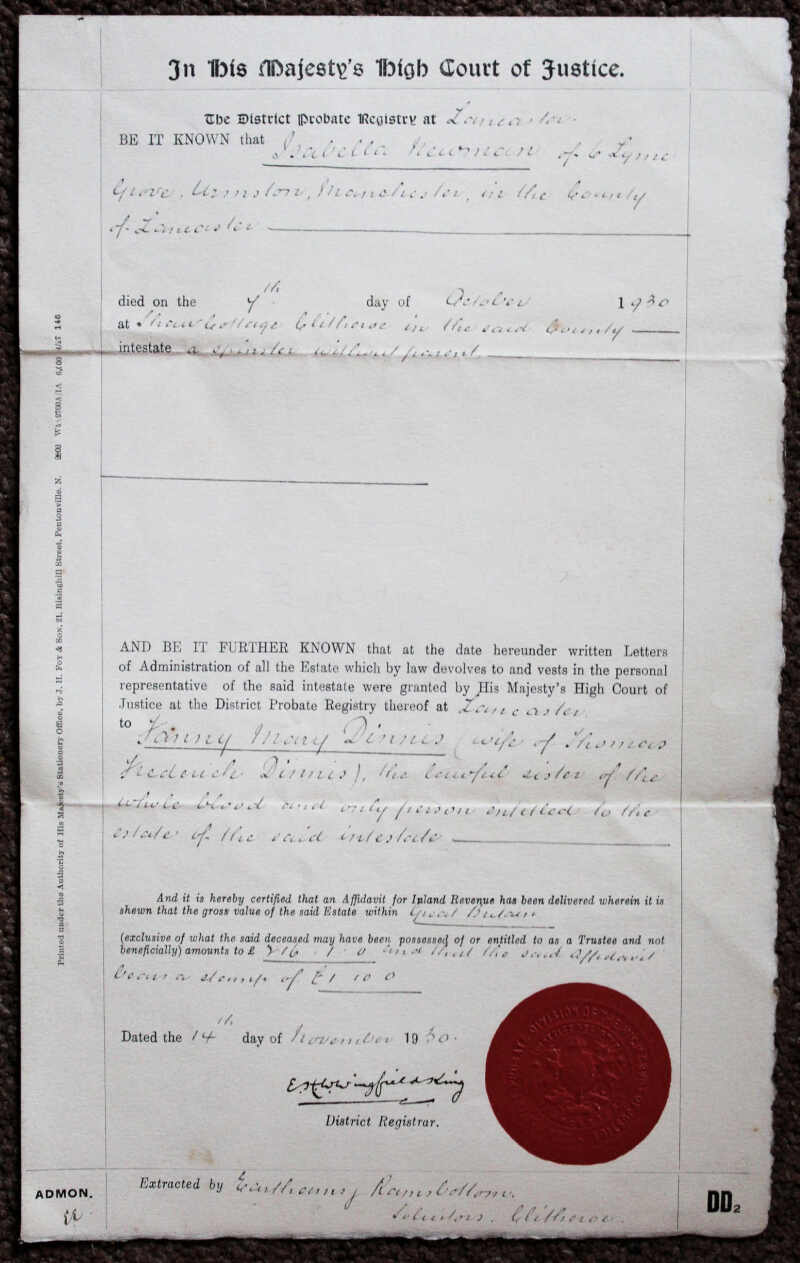 In His Majesty's High Court of Justice.
The District Probate Registry at Lancaster.
BE IT KNOWN that Isabella Newman of 6 Lyme
Grove, Urmston, Manchester, in the County
of Lancaster
died on the 7th day of October 1930
at Shaw Cottage Clitheroe in the said County
intestate a spinster without parent
AND BE IT FURTHER KNOWN that at the date hereunder written Letters
of Administration of all the Estate which by law devolves to and vests in the personal
representative of the said intestate were granted by His Majesty's High Court of
Justice at the District Probate Registry thereof at Lancaster.
to Fanny Mary Dinnis (wife of Thomas
Frederick Dinnis), the lawful sister of the
whole blood and only person entitled to the
estate of the said intestate
And it is hereby certified that an Affidavit for Inland Revenue has been delivered wherein it is
shewn that the gross value of the said Estate within Great Britain
(exclusive of what the said deceased may have been possessed of or entitled to as a Trustee and not
beneficially) amounts to £ and that the said Affidavit
bears a stamp of £1 10 0
Dated the 14th day of November 1930.
District Registrar.
Extracted by Ramsbottom.
Solicitors. Clitheroe.
ADMON.
DD2
Printed under the Authority of His Majesty's Stationery Office, by J. H. Foy & Son, 21, Risinghill Street, Pentonville, N.